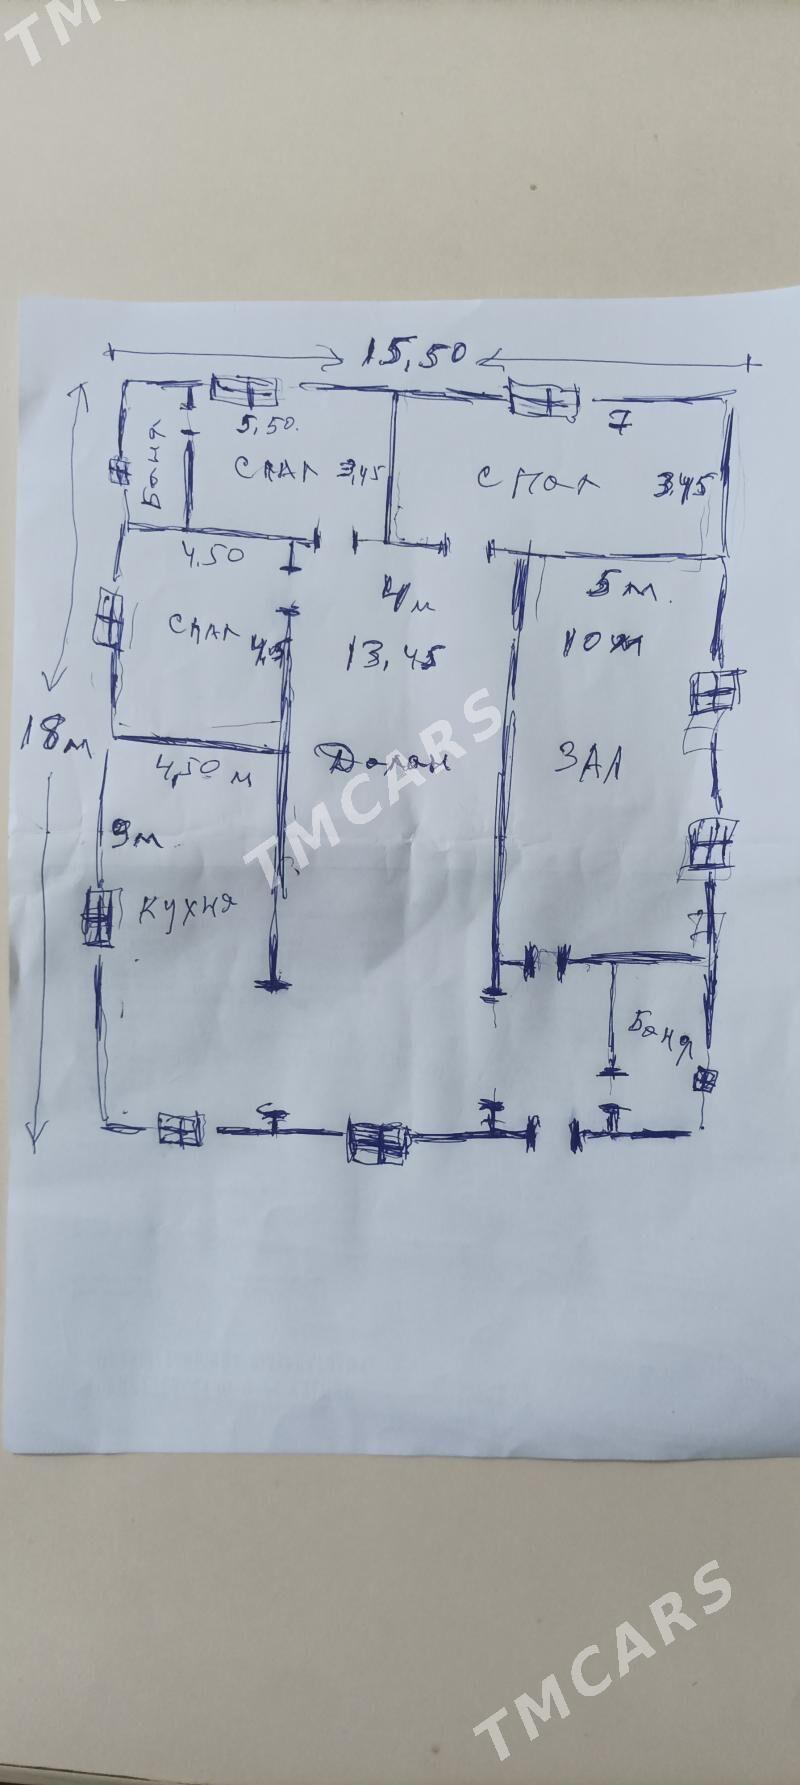 TMCARS
15,50
5,50.
7
Баня
СПАЛ
3,45
СПАЛ
3,45
4,50
4м
5м.
СПАЛ
4,5
13,45
10м
18м
4,50 м
Долан
ЗАЛ
TMCARS
9м
Кухня
Баня
TMCARS